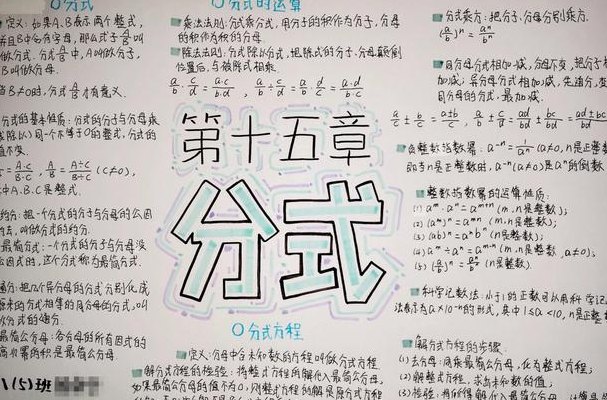 分式
定义：如果A、B表示两个整式，
并且B中含有字母，那么式子A/B叫
做分式。分式A/B中，A叫做分子，
B叫做分母。
当B≠0时，分式A/B才有意义。
分式的基本性质：分式的分子与分母乘
(或除以)同一个不等于0的整式，分式的
值不变。
= A·C/B·C , A/B = A÷C/B÷C (C≠0),
中A.B.C是整式.
约分：把一个分式的分子与分母的公因
去，叫做分式的约分.
最简分式：一个分式的分子与分母没
公因式时，这个分式称为最简分式.
通分：把几个异分母的分式分别化成
原来的分式相等的同分母的分式，叫
做分式的通分.
最简公分母：各分母的所有因式的
高次幂的积是最简公分母.
\(5)班
分式的运算
乘法法则：分式乘分式，用分子的积作为分子，分母
的积作为积的分母.
除法法则：分式除以分式，把除式的分子、分母颠倒
位置后，与被除式相乘.
a/b · c/d = a·c/b·d , a/b ÷ c/d = a/b · d/c = a·d/b·c
第十五章
分式
分式方程
定义：分母中含未知数的方程叫做分式方程
解分式方程的检验：将整式方程的解代入最简公分母，
如果最简公分母的值不为0，则整式方程的解是原分式方程
分式乘方：把分子、分母分别乘方.
(a/b)ⁿ = aⁿ/bⁿ
同分母分式相加减，分母不变，把分子相
加减，异分母分式相加减，先通分，变
同分母的分式，最加减.
a/c ± b/c = a±b/c , a/b ± c/d = ad/bd ± bc/bd = ad±bc/bd
负整数指数幂：a⁻ⁿ = 1/aⁿ (a≠0, n是正整数
即当n是正整数时，a⁻ⁿ (a≠0)是aⁿ的倒数
整数指数幂的运算性质：
(1) aᵐ·aⁿ = aᵐ⁺ⁿ (m、n是整数);
(2) (aᵐ)ⁿ = aᵐⁿ (m、n是整数);
(3) (ab)ⁿ = aⁿbⁿ (n是整数);
(4) aᵐ÷aⁿ = aᵐ⁻ⁿ (m、n是整数, a≠0);
(5) (a/b)ⁿ = aⁿ/bⁿ (n是整数).
科学记数法：小于1的正数可以用科学记
法表示为a×10⁻ⁿ的形式，其中1≤a<10, n是正整
解分式方程的步骤：
(1) 去分母：同乘最简公分母，化为整式方程;
(2) 解整式方程，求出未知数的值;
(3) 检验：将所得解代入最简公分母，